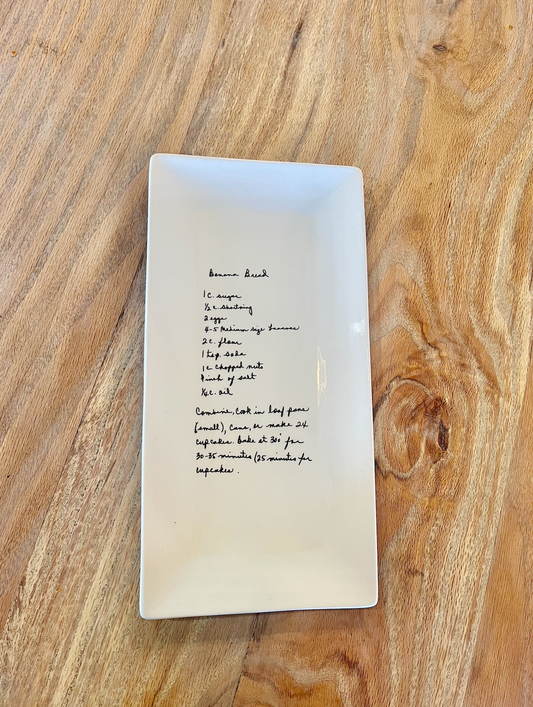 Banana Bread
1 c. sugar
½ c. shortning
2 eggs
4-5 Medium size bananas
2 c. flour
1 tsp. soda
1 c chopped nuts
Pinch of salt
¼ c. oil
Combine, Cook in loaf pans
(small), cans, or make 24
cupcakes. Bake at 300° for
30-35 minutes (25 minutes for
cupcakes.